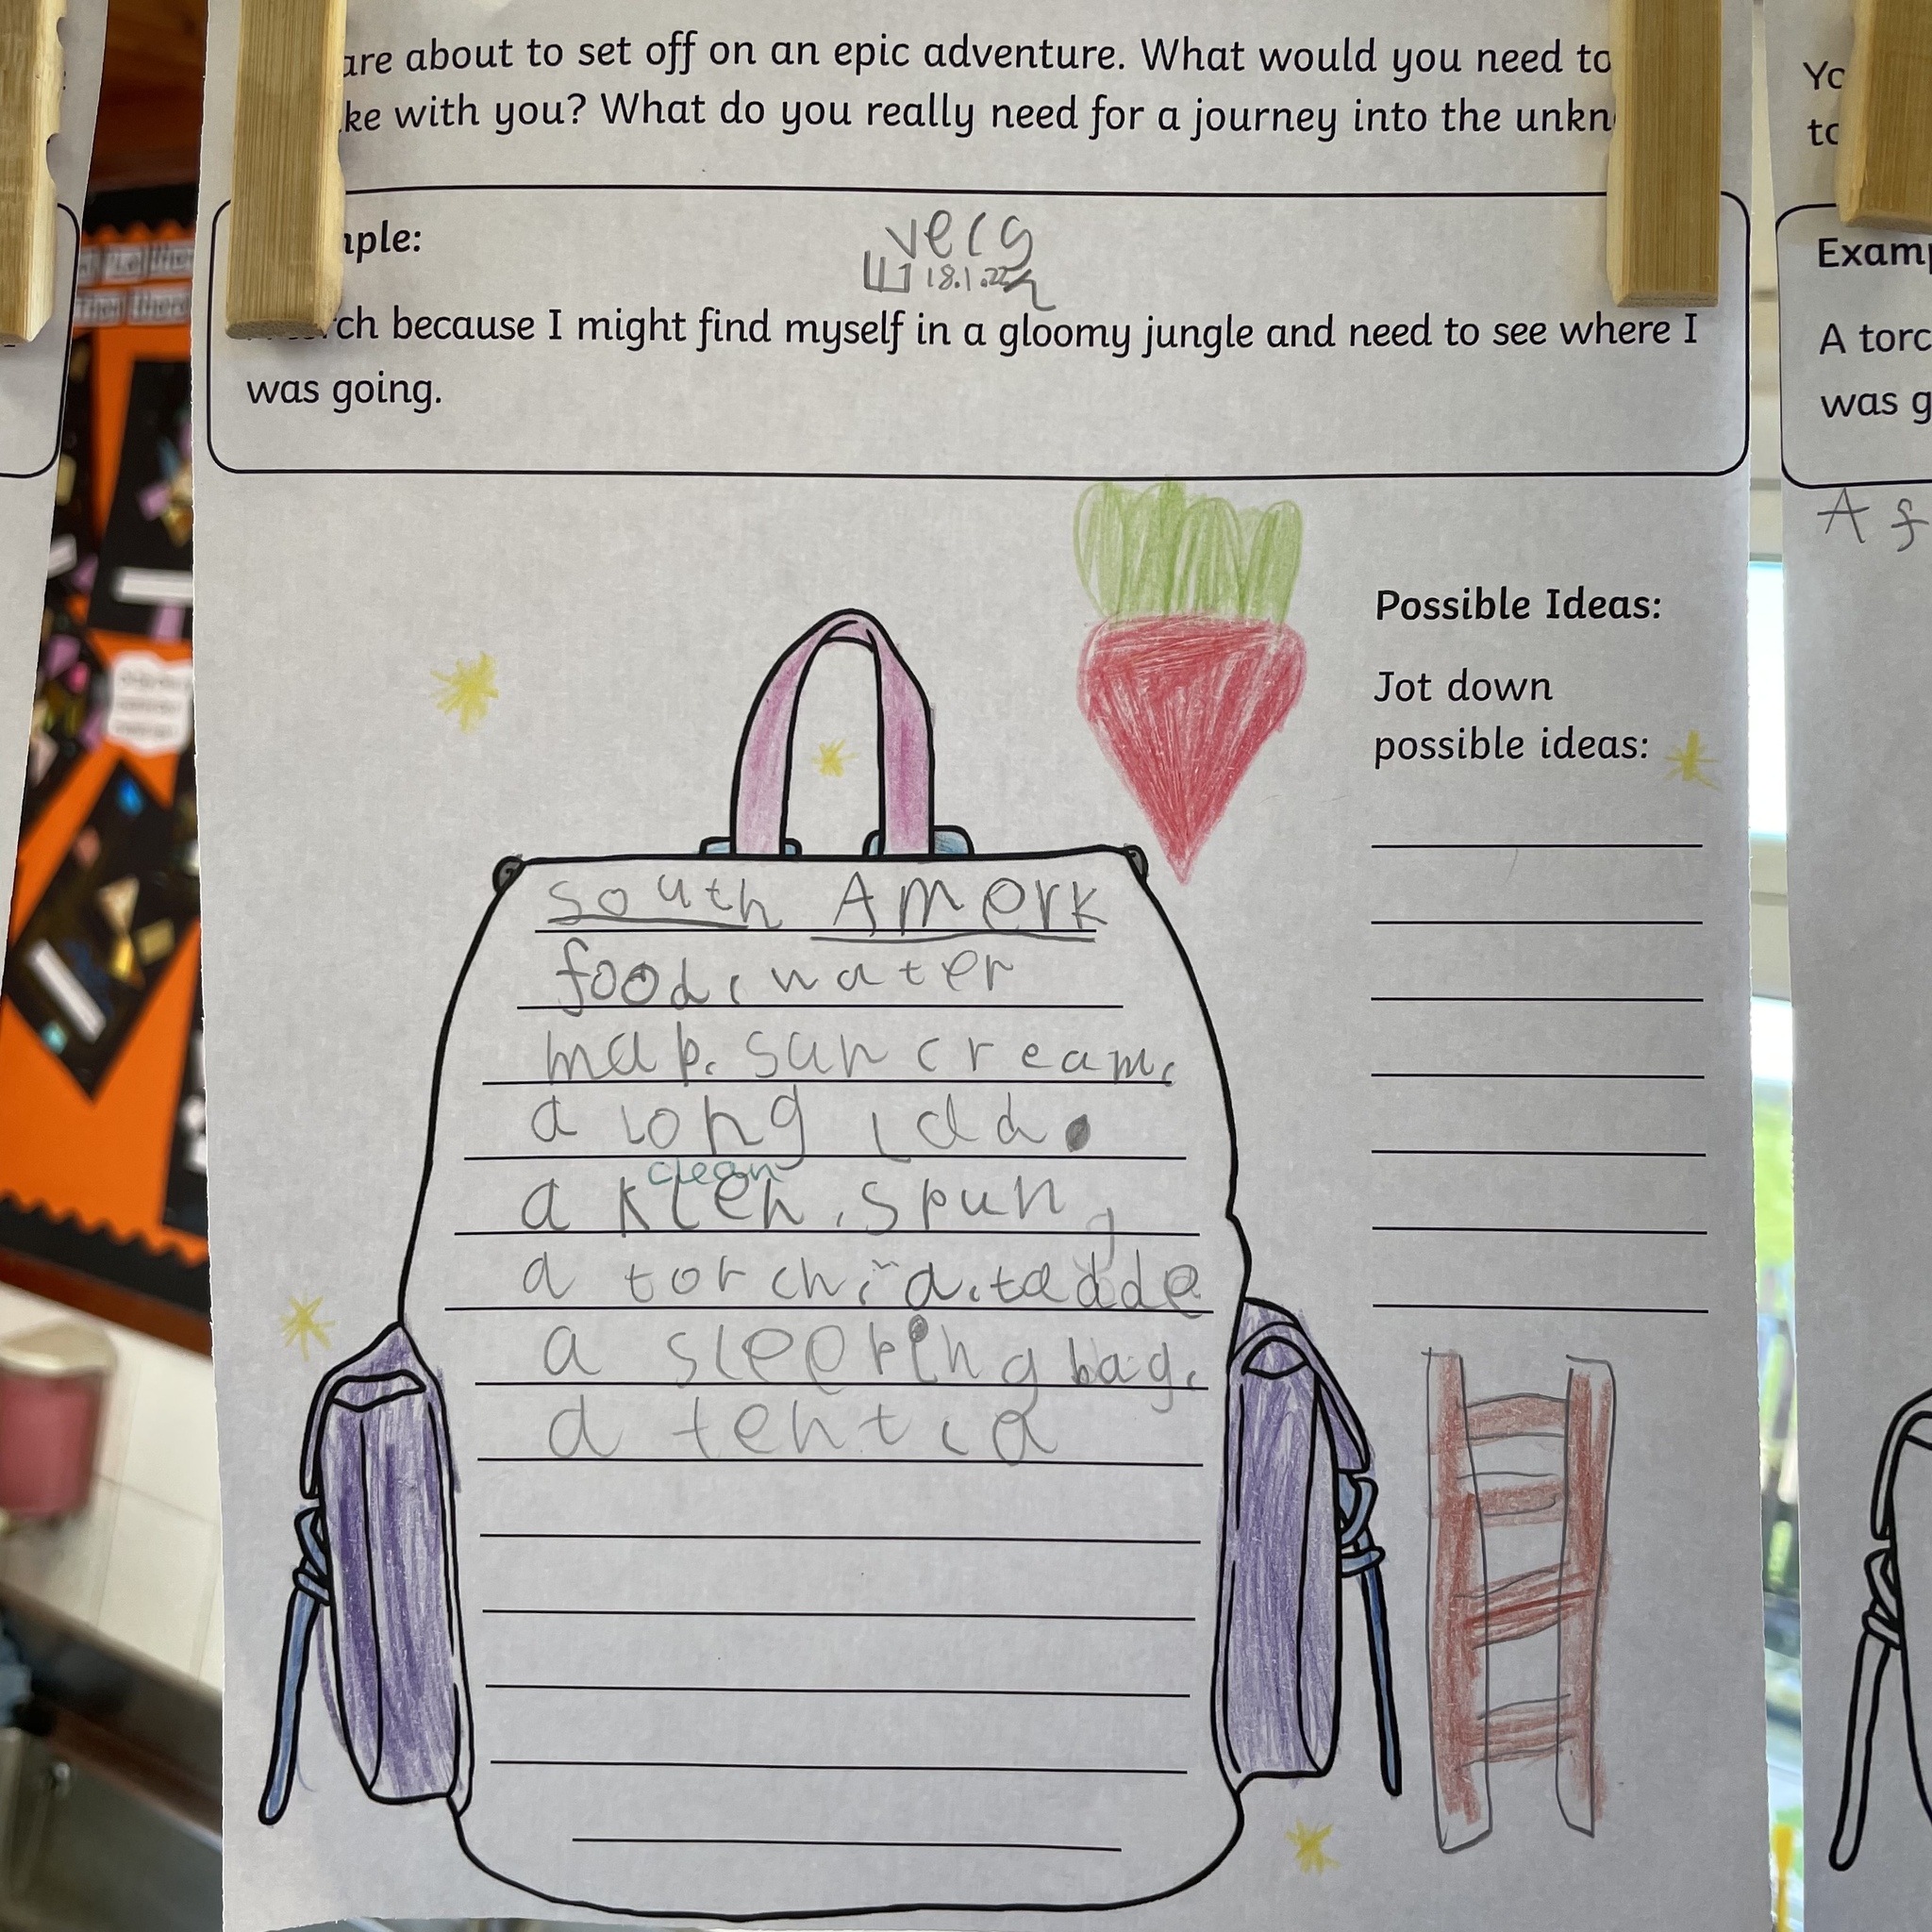 are about to set off on an epic adventure. What would you need to
ke with you? What do you really need for a journey into the unkn
mple:
verg
18.1.22
rch because I might find myself in a gloomy jungle and need to see where I
was going.
Possible Ideas:
Jot down
possible ideas:
south Amerk
food, water
map. sun cream,
a long ldd.
clean
a kleh, spun,
a torch, a. tedde
a sleeping bag,
a tent, a
Yo
to
Examp
A torc
was g
A f